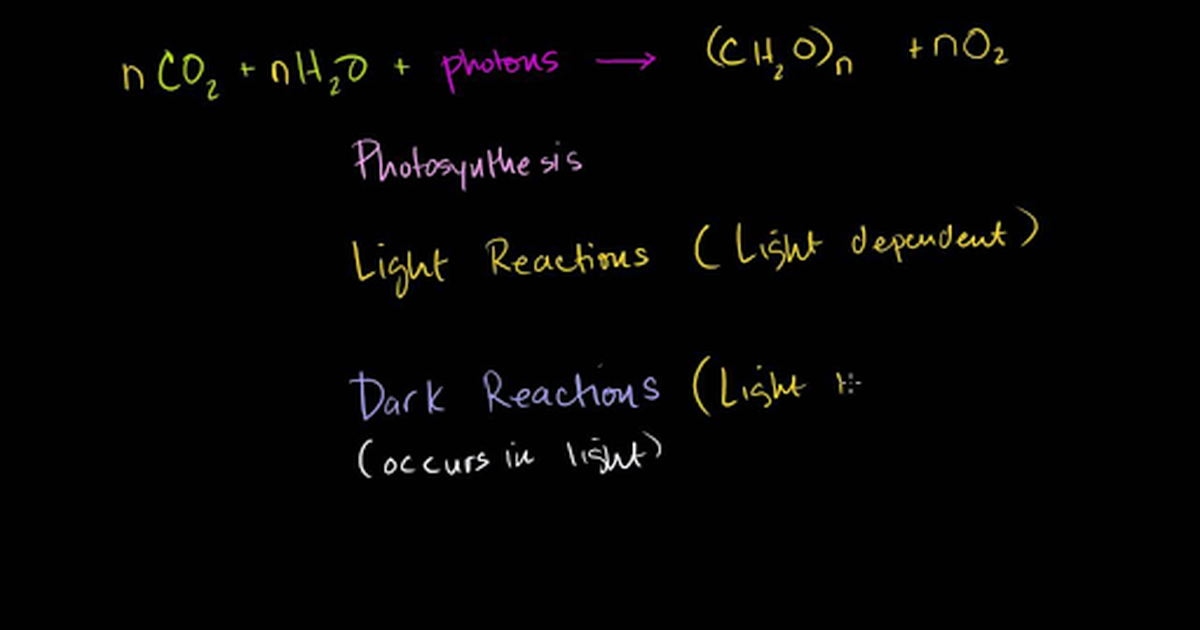 nCO₂ + nH₂O + photons → (CH₂O)n + nO₂
Photosynthesis
Light Reactions (Light dependent)
Dark Reactions (Light
(occurs in light)